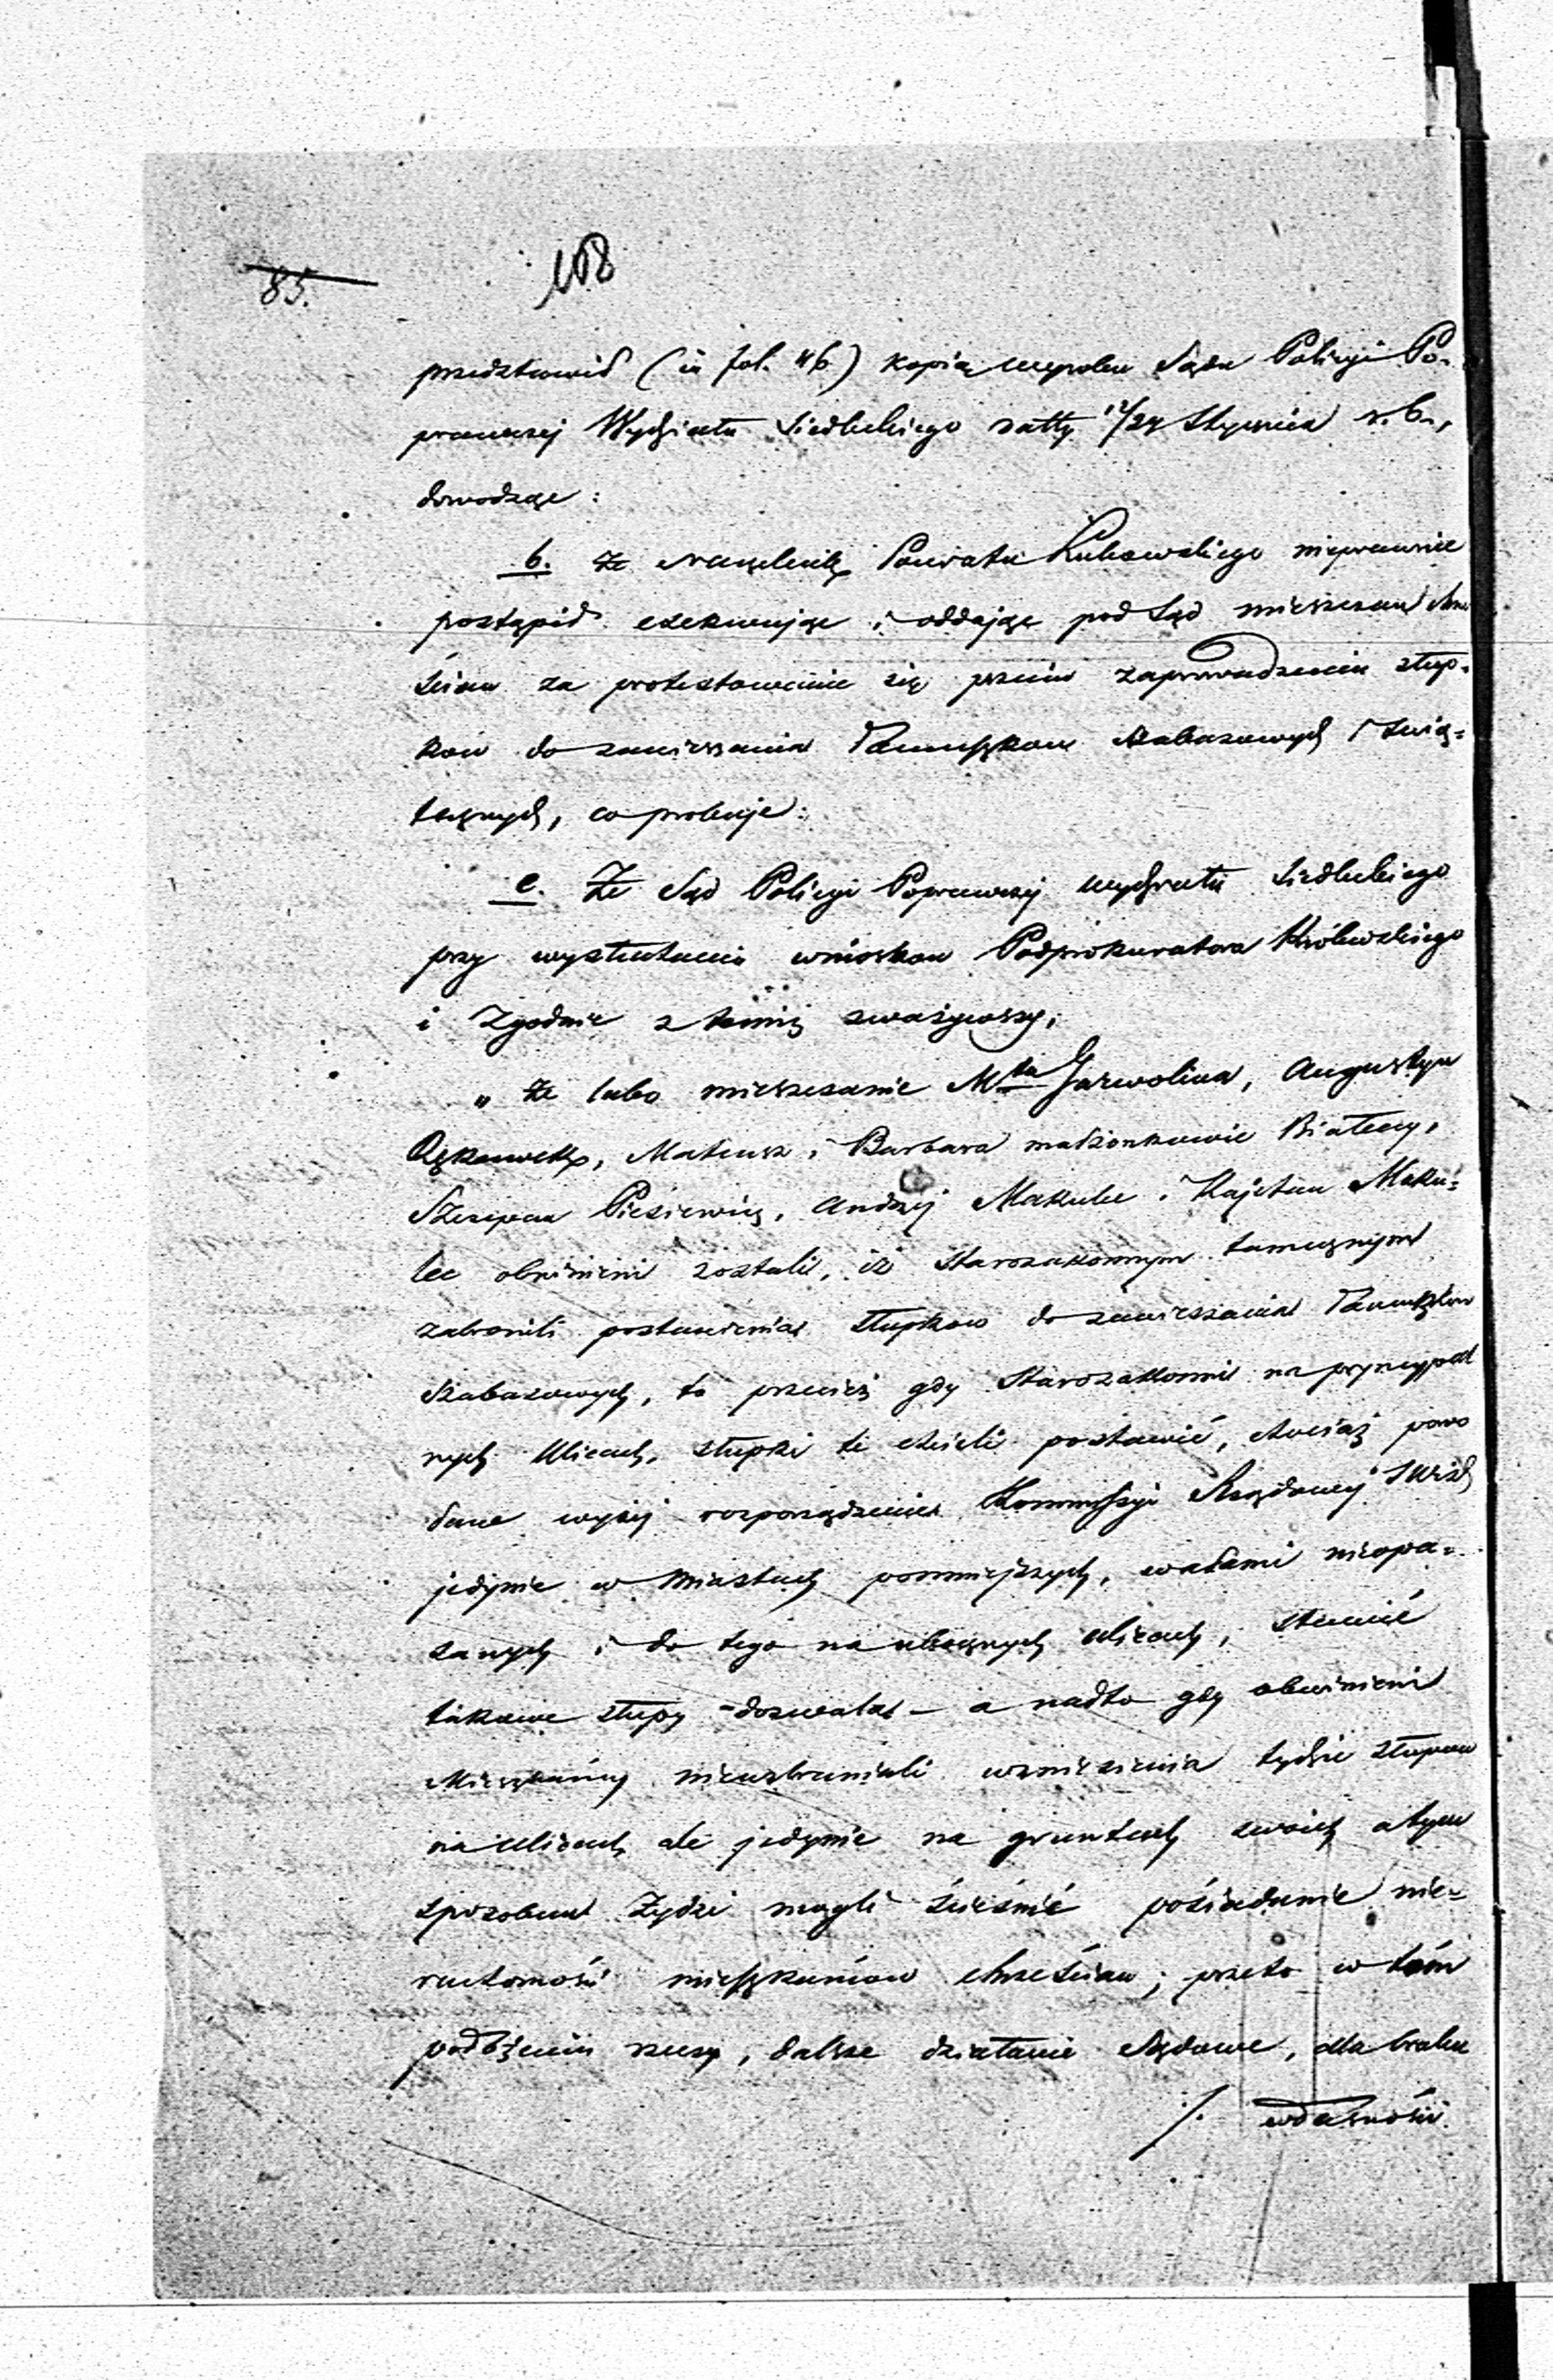 85.
108
przedstawił (in fol. 46) kopią wyroku Sądu Policyi Po-
prawczej Wydziału Siedleckiego datty 12/24 Stycznia r. b.,
dowodząc:
b. że Naczelnik Powiatu Łukowskiego nieprawnie
postąpił exekwując i oddając pod Sąd mieszczan Chrze
ścian za protestowanie się przeciw zaprowadzeniu słup-
ków do zawieszania Łańcuszkow szabasowych i świą-
tecznych, co probuje:
c. Że Sąd Policyi Poprawczej Wydziału Siedleckiego
przy wysłuchaniu wniosków Podprokuratora Królewskiego
i Zgodnie z temiż zważywszy,
„ że lubo mieszczanie Mta Garwolina, Augustyn
Mateusz i Barbara małżonkowie Białeccy,
Szczepan Piesiewicz, Andrzej Makulec i Kajetan Maku-
lec obwinieni zostali, iż Starozakonnym tamecznym
zabronili postawienia słupkow do zawieszania
Szabasowych, to przecież gdy Starozakonni na pryncypal
nych Ulicach, słupki te chcieli postawić, chociaż powo
łane wyżej rozporządzenie Kommissyi Rządowej
jedynie w Miastach pomniejszych, wałami nieopa-
sanych i do tego na ubocznych ulicach, stawić
takowe słupy dozwala – a nadto gdy obwinieni
Mieszkańcy niewzbraniali wzniesienia tychże słupow
na Ulicach ale jedynie na gruntach swoich a tym
sposobem Żydzi mogli ścieśnić posiadanie nie-
ruchomości mieszkańcow chrześcian; przeto w tém
położeniu rzeczy, dalsze działanie Sądowe, dla braku
./. właściwości